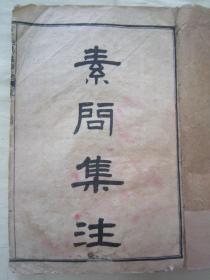 素問集注